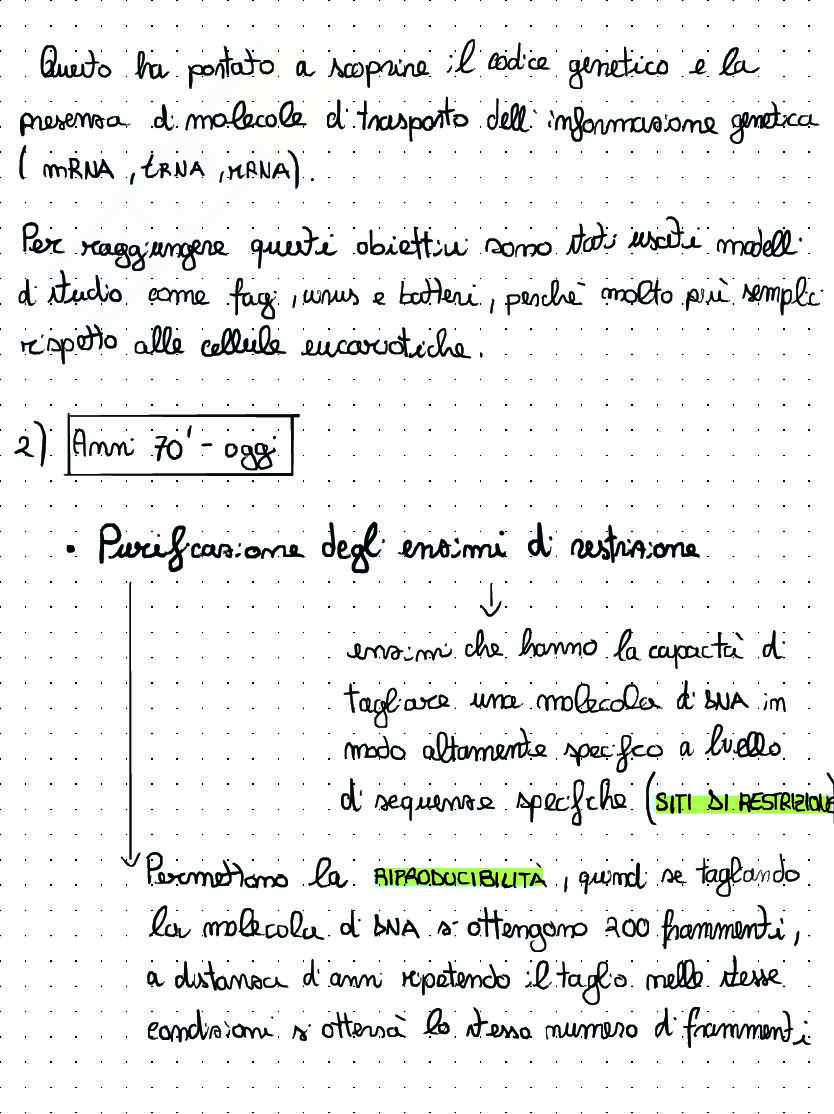 Questo ha portato a scoprire il codice genetico e la
presenza di molecole di trasporto dell'informazione genetica
( mRNA , tRNA , rRNA ) .
Per raggiungere questi obiettivi sono stati usati modelli
di studio come fagi , virus e batteri , perché molto più semplici
rispetto alle cellule eucariotiche .
2) Anni 70' - oggi
• Purificazione degli enzimi di restrizione
↓
enzimi che hanno la capacità di
tagliare una molecola di DNA in
modo altamente specifico a livello
di sequenze specifiche ( SITI DI RESTRIZIONE )
Permettono la RIPRODUCIBILITÀ , quindi se tagliando
la molecola di DNA si ottengono 200 frammenti ,
a distanza di anni ripetendo il taglio nelle stesse
condizioni si otterrà lo stesso numero di frammenti